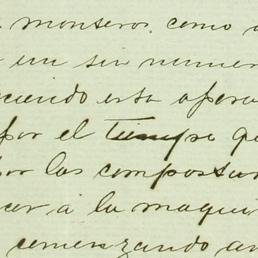 monteros, como a
un sin numer
ciendo esta opera
por el tiempo qu
por las compostur
cer á la maqui
comenzando an